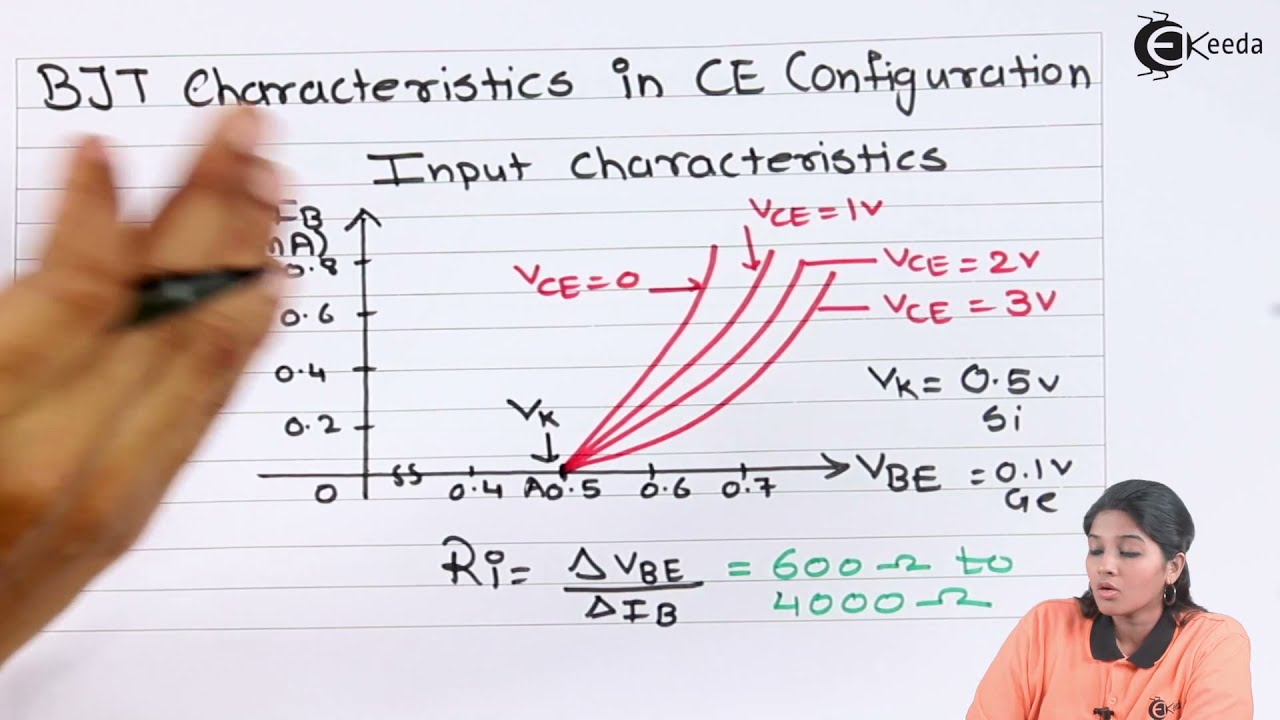 EKeeda
BJT Characteristics in CE Configuration
Input Characteristics
IB
A)
0.8
0.6
0.4
0.2
0
0.4 A0.5 0.6 0.7
VK
VCE=0
VCE=1V
VCE=2V
VCE=3V
VK=0.5V
Si
VBE =0.1V
Ge
Ri= ΔVBE/ΔIB = 600Ω to
4000Ω
EKeeda